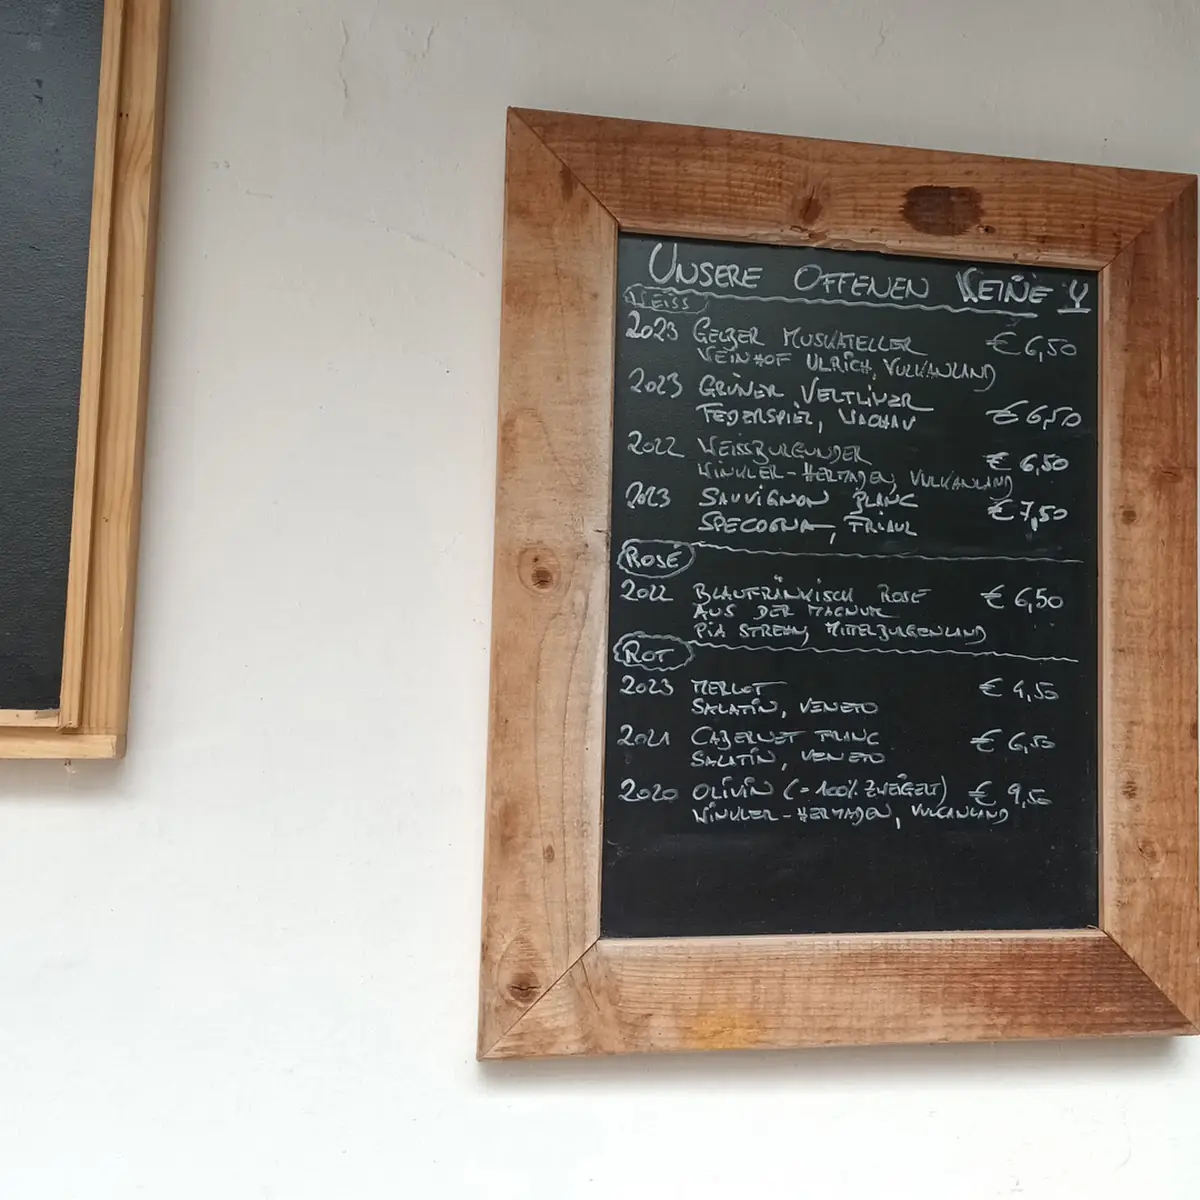 UNSERE OFFENEN WEINE
WEISS
2023 GELBER MUSKATELLER € 6,50
WEINHOF ULRICH, VULKANLAND
2023 GRÜNER VELTLINER
FEDERSPIEL, WACHAU € 6,50
2022 WEISSBURGUNDER € 6,50
WINKLER-HERMADEN, VULKANLAND
2023 SAUVIGNON BLANC € 7,50
SPECOGNA, FRIAUL
ROSÉ
2022 BLAUFRÄNKISCH ROSE € 6,50
AUS DER MAGNUM
PIA STREHN, MITTELBURGENLAND
ROT
2023 MERLOT € 4,50
SALATIN, VENETO
2021 CABERNET FRANC € 6,50
SALATIN, VENETO
2020 OLIVIN (= 100% ZWEIGELT) € 9,50
WINKLER-HERMADEN, VULCANLAND